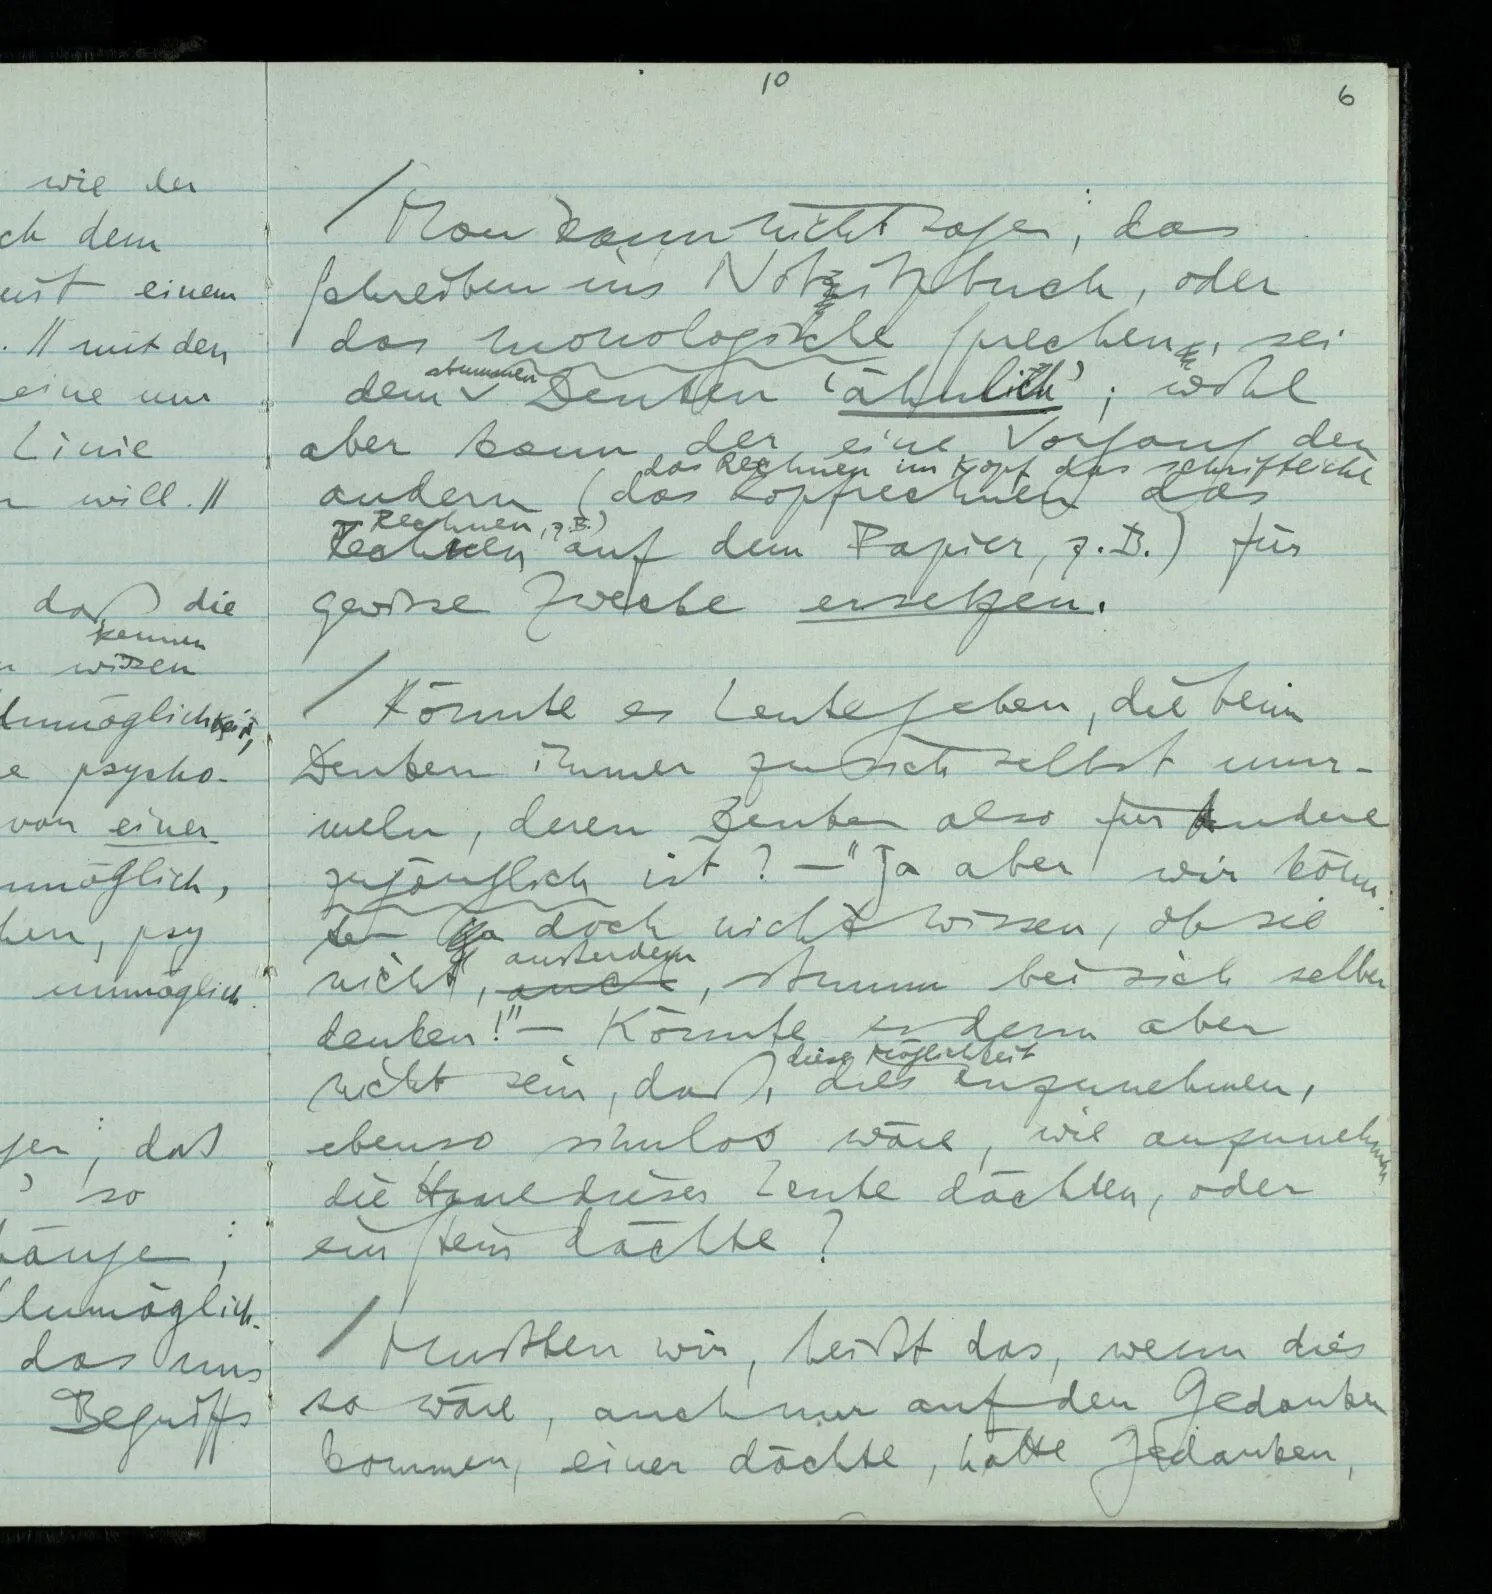 10
6
wie der
ch dem
einem
. // mit den
eine nur
Linie
n will. //
daß die
kennen
n wissen
Unmöglichkeit,
e psycho-
von einer
unmöglich,
hen, psy
unmöglich
gen; daß
' so
hänge;
Unmöglich-
das uns
Begriffs
/ Man kann nicht sagen; das
Schreiben ins Notitzbuch, oder
das monologische Sprechen, sei
stummen
dem ˅ Denken ‘ähnlich’; wohl
aber kann der eine Vorgang den
das Rechnen im Kopf das schriftliche
andern (das Kopfrechnen das
Rechnen, z.B.)
Rechnen auf dem Papier, z.B.) für
gewisse Zwecke ersetzen.
/ Könnte es Leute geben, die beim
Denken immer zu sich selbst mur-
meln, deren Denken also für Andere
zugänglich ist? – "Ja aber wir könn-
ten ja doch nicht wissen, ob sie
außerdem
nicht, auch, stumm bei sich selber
denken!" – Könnte es denn aber
diese Möglichkeit
nicht sein, daß, dies anzunehmen,
ebenso sinnlos wäre, wie anzunehmen
die Haare dieser Leute dächten, oder
ein Stein dächte?
/ Mußten wir, heißt das, wenn dies
so wäre, auch nur auf den Gedanken
kommen, einer dächte, hätte Gedanken,